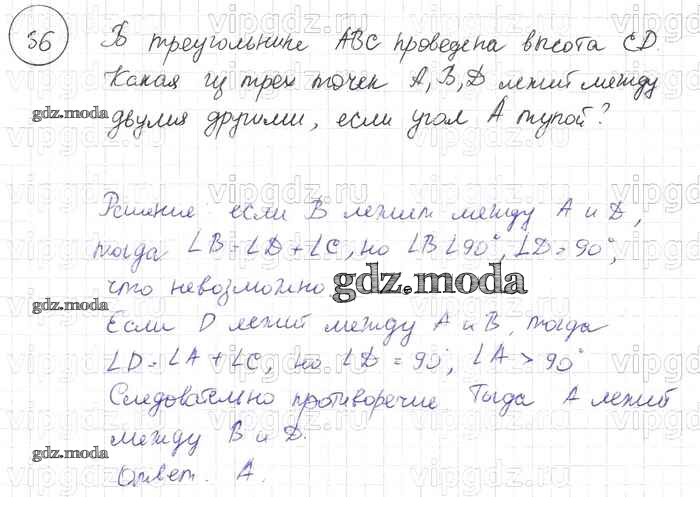 36 В треугольнике ABC проведена высота CD.
Какая из трех точек A, B, D лежит между
двумя другими, если угол A тупой?
gdz.moda
Решение: если B лежит между A и D,
тогда ∠B = ∠D + ∠C, но ∠B ∠ 90°, ∠D = 90°,
что невозможно.
gdz.moda
Если D лежит между A и B, тогда
∠D = ∠A + ∠C, но ∠D = 90°, ∠A > 90°
Следовательно противоречие Тогда A лежит
между B и D.
gdz.moda
Ответ. A.
vipgdz.ru